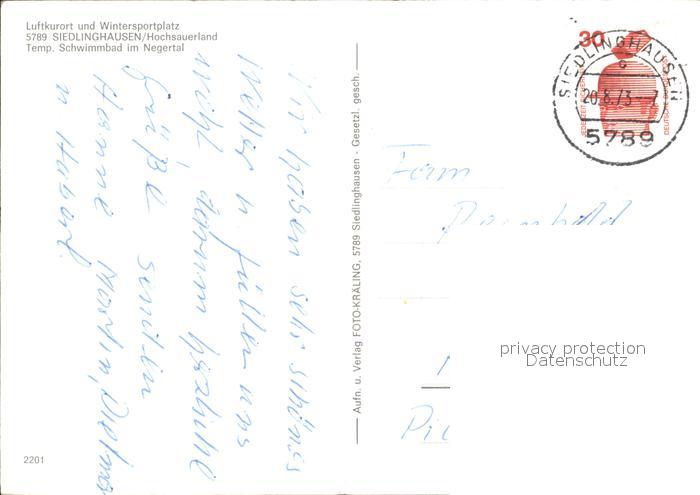 Luftkurort und Wintersportplatz
5789 SIEDLINGHAUSEN/Hochsauerland
Temp. Schwimmbad im Negertal
Wir haben sehr schönes
Wetter u. fühlen uns
wohl, darum herzliche
Grüße senden
Hanne Martin, Dietmar
u. Hubert
Aufn. u. Verlag FOTO-KRÄLING, 5789 Siedlinghausen - Gesetzl. gesch.
30
JEDERZEIT SICHERHEIT
DEUTSCHE BUNDESPOST
SIEDLINGHAUSEN
20.8.73-7
5789
Fam
privacy protection
Datenschutz
2201